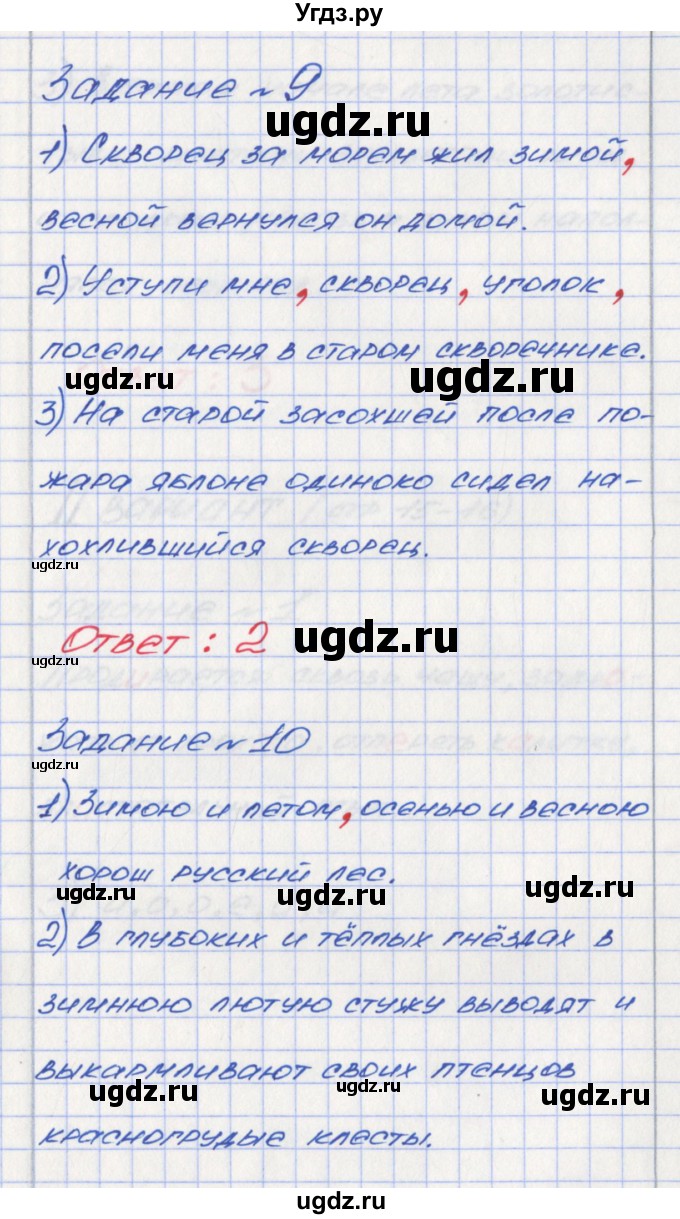 Угдз.ру
Задание № 9
ugdz.ru
1) Скворец за морем жил зимой,
весной вернулся он домой.
2) Уступи мне, скворец, уголок,
посели меня в старом скворечнике.
ugdz.ru ugdz.ru
3) На старой засохшей после по-
жара яблоне одиноко сидел на-
хохлившийся скворец.
ugdz.ru
Ответ: 2 ugdz.ru
ugdz.ru
Задание № 10
ugdz.ru
1) Зимою и летом, осенью и весною
хорош русский лес.
ugdz.ru ugdz.ru ugdz.ru
2) В глубоких и тёплых гнёздах в
зимнюю лютую стужу выводят и
выкармливают своих птенцов
ugdz.ru ugdz.ru ugdz.ru
красногрудые клесты.
ugdz.ru